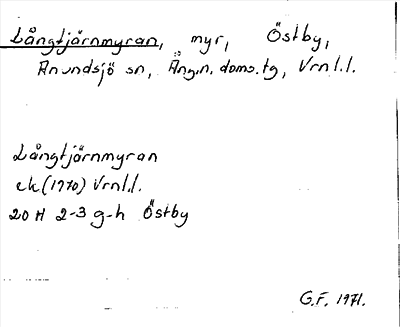 Långtjärnmyran, myr, Östby,
Anundsjö sn, Ångn. doms.tg, Vrnl.l.
Långtjärnmyran
ek (1970) Vrnl.l.
20 H 2-3 g-h Östby
G.F. 1971.